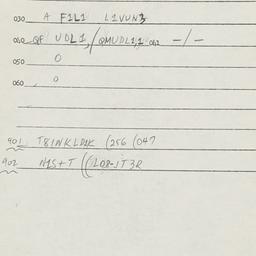 030 A F1L1 L1VUN3
040 QF UDL1,/QMUDL1,1 042 -/-
050 0
060 0
901 T81NKLDAK (256 (047
902 N1S+T ((LD8-1T3R